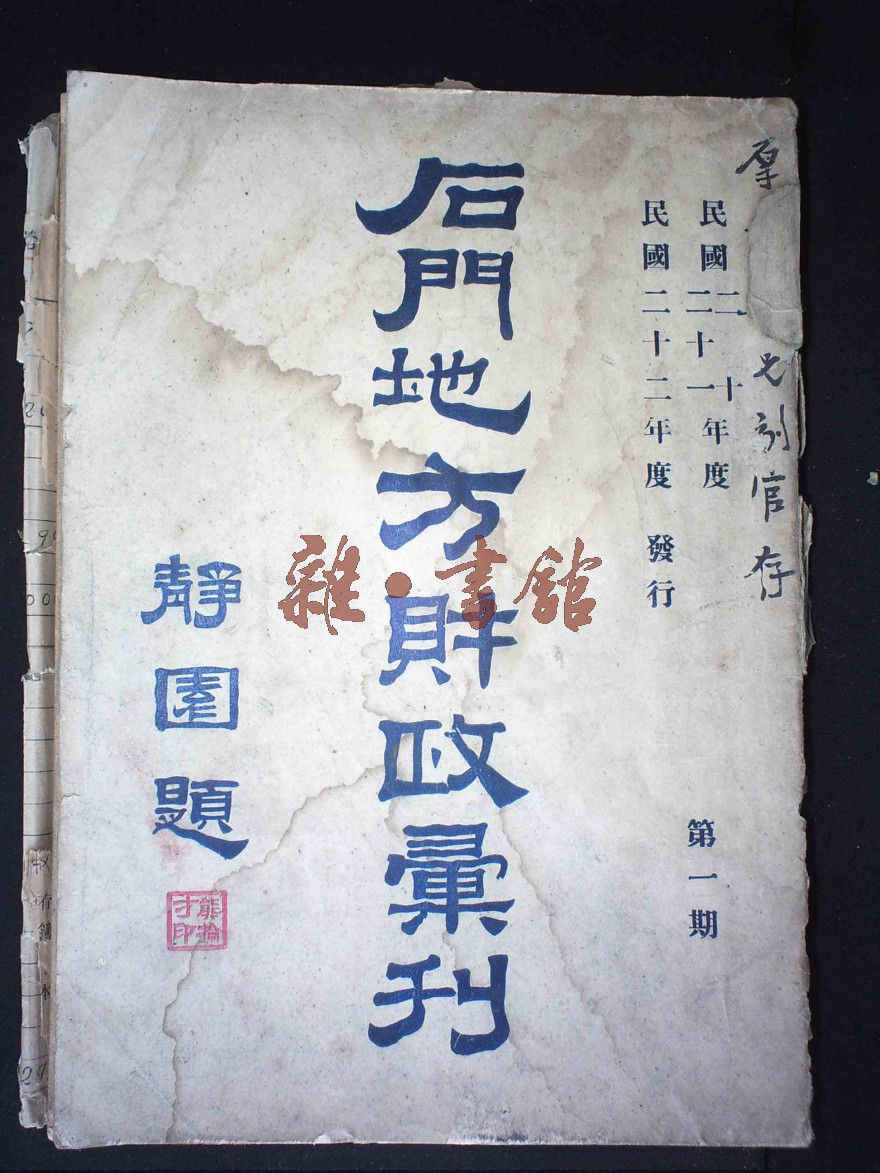 厚
七劄官存
民國二十年度
民國二十一年度
民國二十二年度 發行
第一期
石門地方財政彙刊
靜園題
熊掄才印
雜·書館